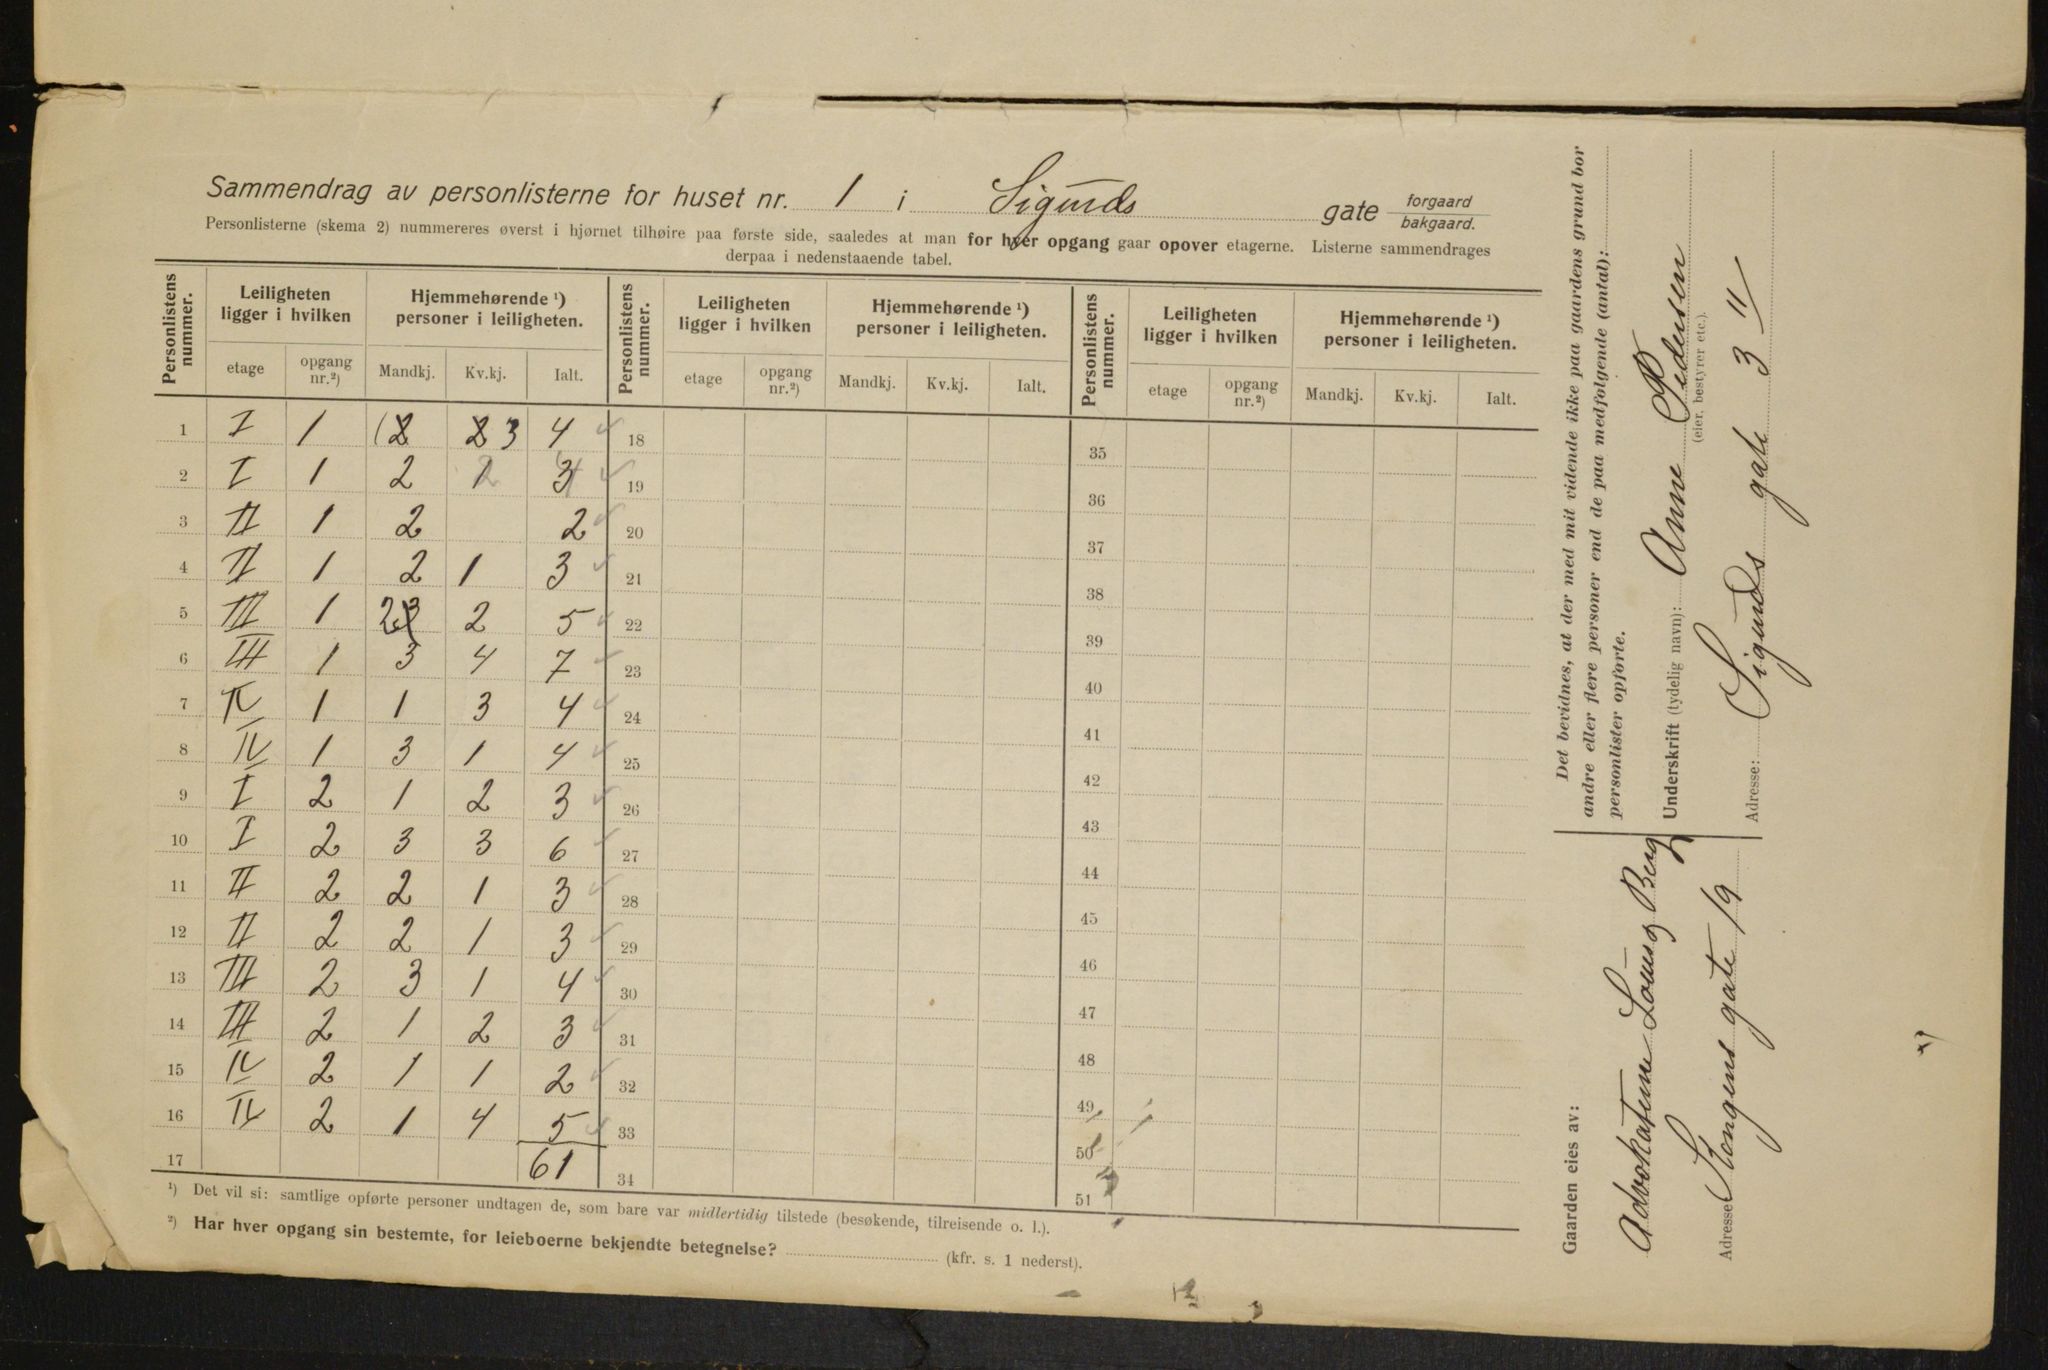 Sammendrag av personlisterne for huset nr. 1 i Sigurds gate forgaard bakgaard.
Personlisterne (skema 2) nummereres øverst i hjørnet tilhøire paa første side, saaledes at man for hver opgang gaar opover etagerne. Listerne sammendrages
derpaa i nedenstaaende tabel.
Personlistens nummer. Leiligheten ligger i hvilken Hjemmehørende ¹) personer i leiligheten. Personlistens nummer. Leiligheten ligger i hvilken Hjemmehørende ¹) personer i leiligheten. Personlistens nummer. Leiligheten ligger i hvilken Hjemmehørende ¹) personer i leiligheten.
etage opgang nr.²) Mandkj. Kv.kj. Ialt. etage opgang nr.²) Mandkj. Kv.kj. Ialt. etage opgang nr.²) Mandkj. Kv.kj. Ialt.
1 I 1 1 2 2 3 4 18 35
2 I 1 2 1 2 3 4 19 36
3 II 1 2 2 20 37
4 II 1 2 1 3 21 38
5 III 1 2 3 2 5 22 39
6 III 1 3 4 7 23 40
7 IV 1 1 3 4 24 41
8 IV 1 3 1 4 25 42
9 I 2 1 2 3 26 43
10 I 2 3 3 6 27 44
11 II 2 2 1 3 28 45
12 II 2 2 1 3 29 46
13 III 2 3 1 4 30 47
14 III 2 1 2 3 31 48
15 IV 2 1 1 2 32 49
16 IV 2 1 4 5 33 50
17 61 34 51
¹) Det vil si: samtlige opførte personer undtagen de, som bare var midlertidig tilstede (besøkende, tilreisende o. l.).
²) Har hver opgang sin bestemte, for leieboerne bekjendte betegnelse? (kfr. s. 1 nederst).
Det bevidnes, at der med mit vidende ikke paa gaardens grund bor
andre eller flere personer end de paa medfølgende (antal):
personlister opførte.
Underskrift (tydelig navn): Anne Pedersen
(eier, bestyrer etc.).
Adresse: Sigurds gate 3 II
Gaarden eies av:
Advokaterne Louis Berg
Adresse Kongens gate 19